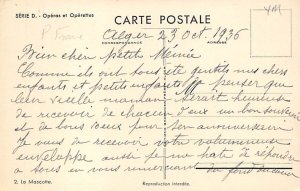 SÉRIE D. - Opéras et Opérettes
CARTE POSTALE
Alger 23 Oct. 1936
CORRESPONDANCE
ADRESSE
Bien cher petits Mémie
Comme ils ont tous été gentils mes chers
enfants et petits enfants penser que
leur vieille maman serait heureuse
de recevoir de chacun d'eux un bon souvenir
et de bons vœux pour son anniversaire
Je viens de recevoir votre volumineuse
enveloppe aussi je me hâte de répondre
à tous en vous remerciant du fond du cœur
2. La Mascotte.
Reproduction interdite.